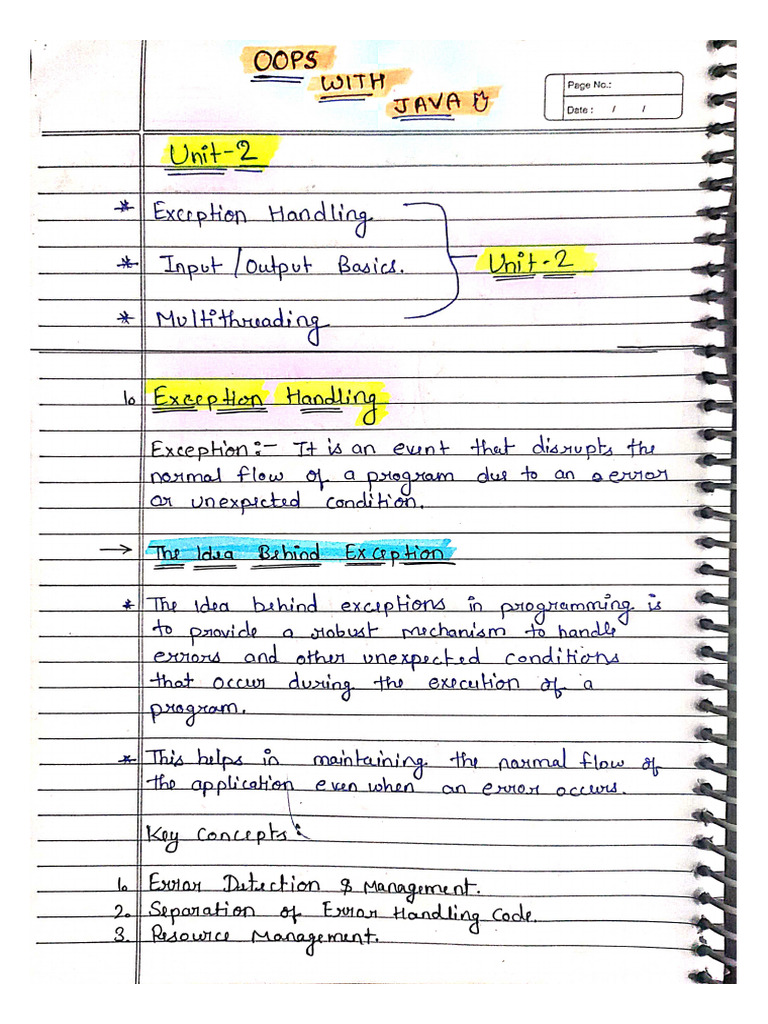 OOPS
WITH
JAVA
Page No.:
Date : / /
Unit-2
* Exception Handling
* Input/Output Basics.
* Multithreading
Unit-2
1. Exception Handling
Exception:- It is an event that disrupts the
normal flow of a program due to an error
or unexpected condition.
→ The Idea Behind Exception
* The Idea behind exceptions in programming is
to provide a robust mechanism to handle
errors and other unexpected conditions
that occur during the execution of a
program.
* This helps in maintaining the normal flow of
the application even when an error occurs.
Key Concepts:
1. Error Detection & Management.
2. Separation of Error Handling Code.
3. Resource Management.